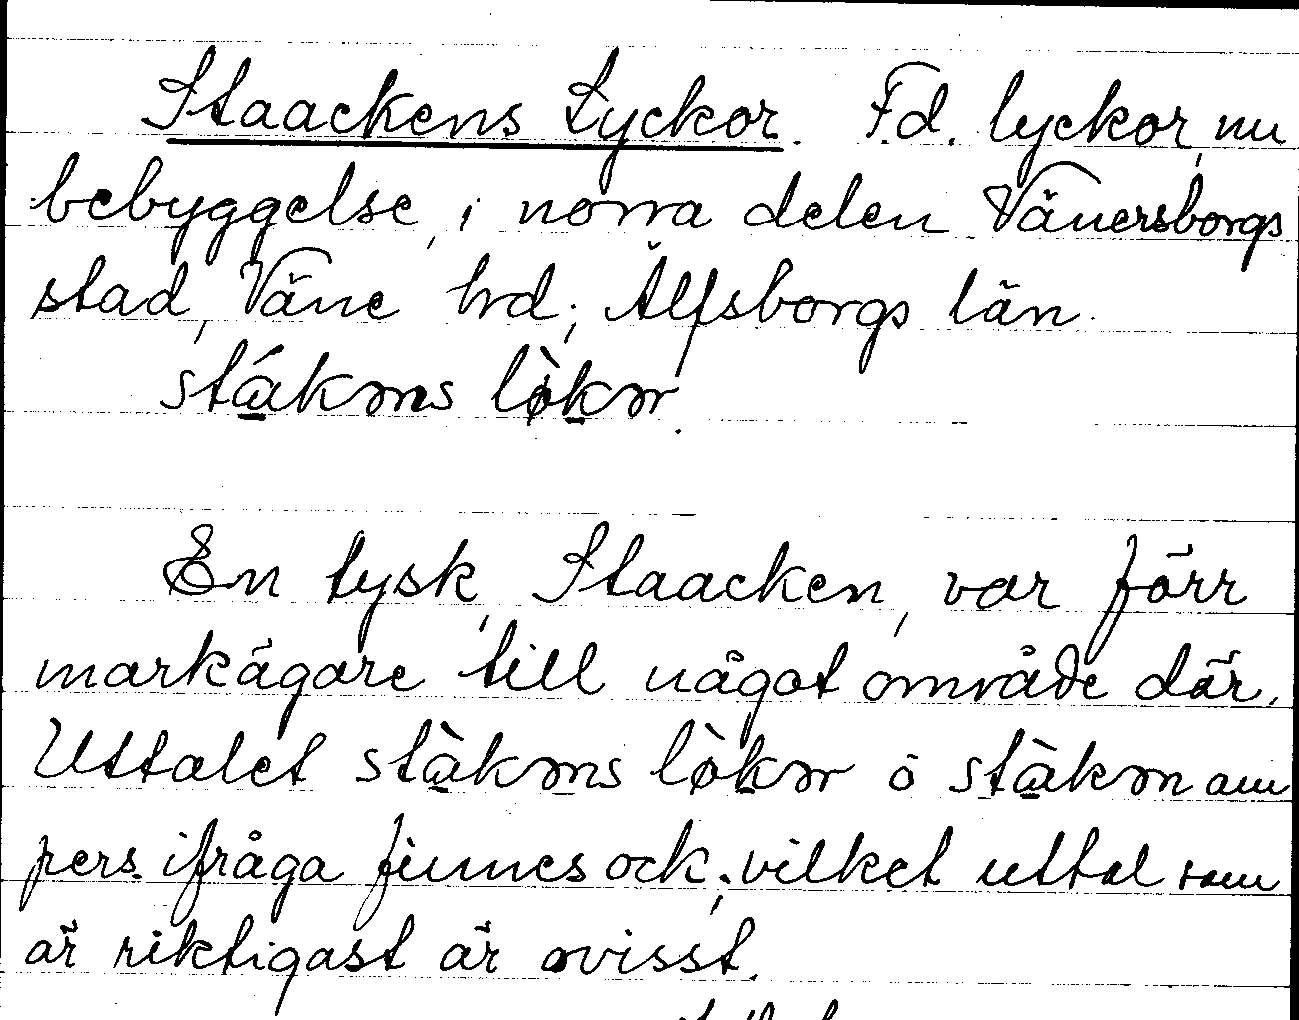 Staackens Lyckor. F.d. lyckor, nu
bebyggelse, i norra delen Vänersborgs
stad, Väne hrd; Älfsborgs län.
stákəns lø̀kər.
En tysk, Staacken, var förr
markägare till något område där.
Uttalet stàkəns lø̀kər o stàkən om
pers. ifråga finnes ock; vilket uttal som
är riktigast är ovisst.